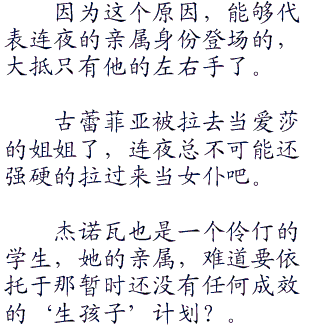 因为这个原因，能够代
表连夜的亲属身份登场的，
大抵只有他的左右手了。
古蕾菲亚被拉去当爱莎
的姐姐了，连夜总不可能还
强硬的拉过来当女仆吧。
杰诺瓦也是一个伶仃的
学生，她的亲属，难道要依
托于那暂时还没有任何成效
的‘生孩子’计划？。